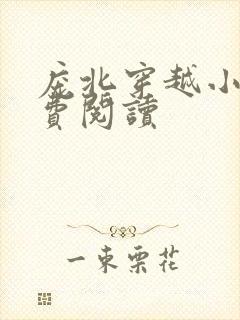 庇北穿越小
費閱讀
一束栗花